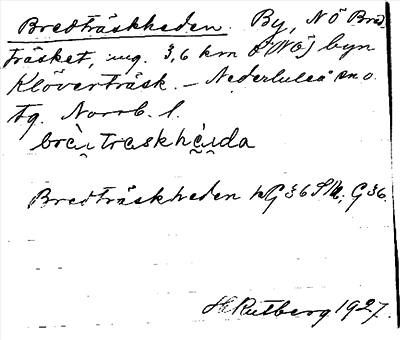 Bredträskheden. By, NÖ Bred-
träsket, ung. 3,6 km Ö(NÖ) byn
Klöverträsk. – Nederluleå sn o.
tg. Norrb. l.
Bredträskheden G 36 G 36.
H. Rutberg 1927.